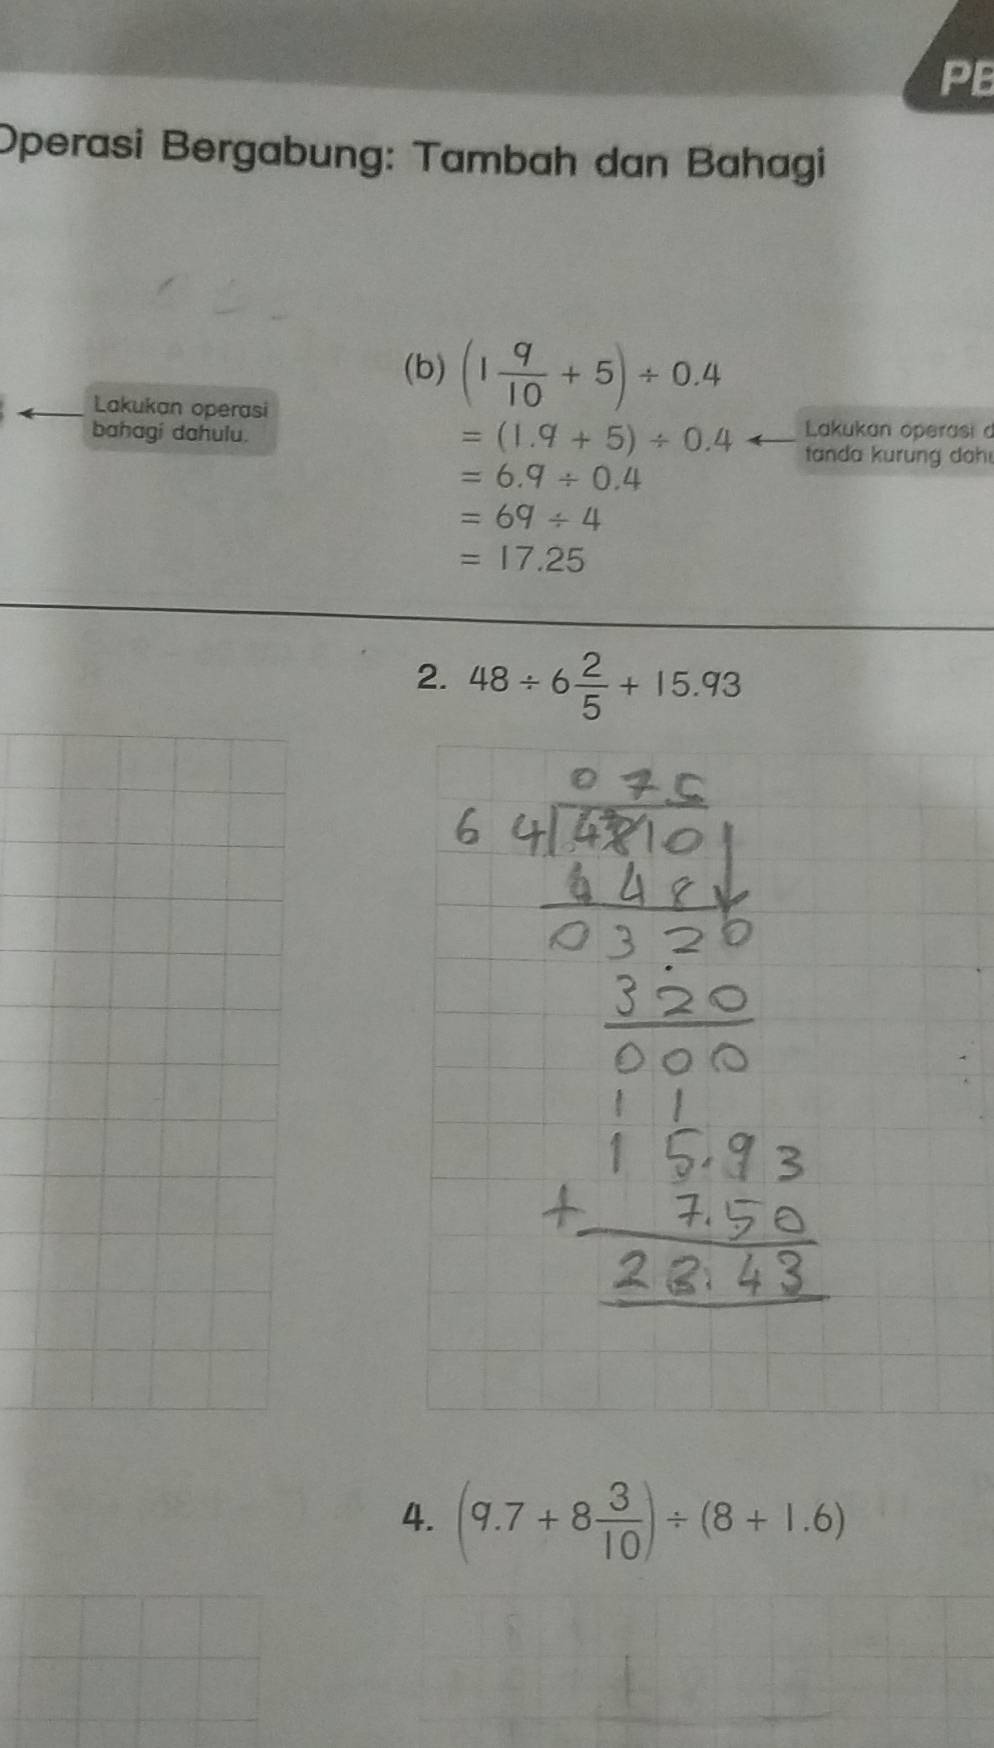 PB
Operasi Bergabung: Tambah dan Bahagi
(b) (1 9/10 + 5) ÷ 0.4
Lakukan operasi
bahagi dahulu.
= (1.9 + 5) ÷ 0.4
Lakukan operasi
tanda kurung
= 6.9 ÷ 0.4
= 69 ÷ 4
= 17.25
2. 48 ÷ 6 2/5 + 15.93
0 7 5
6 4 4 8 1 0
4 4 8
0 3 2 0
3 2 0
0 0 0
1 1
1 5.9 3
+ 7.5 0
2 3.4 3
4. (9.7 + 8 3/10) ÷ (8 + 1.6)